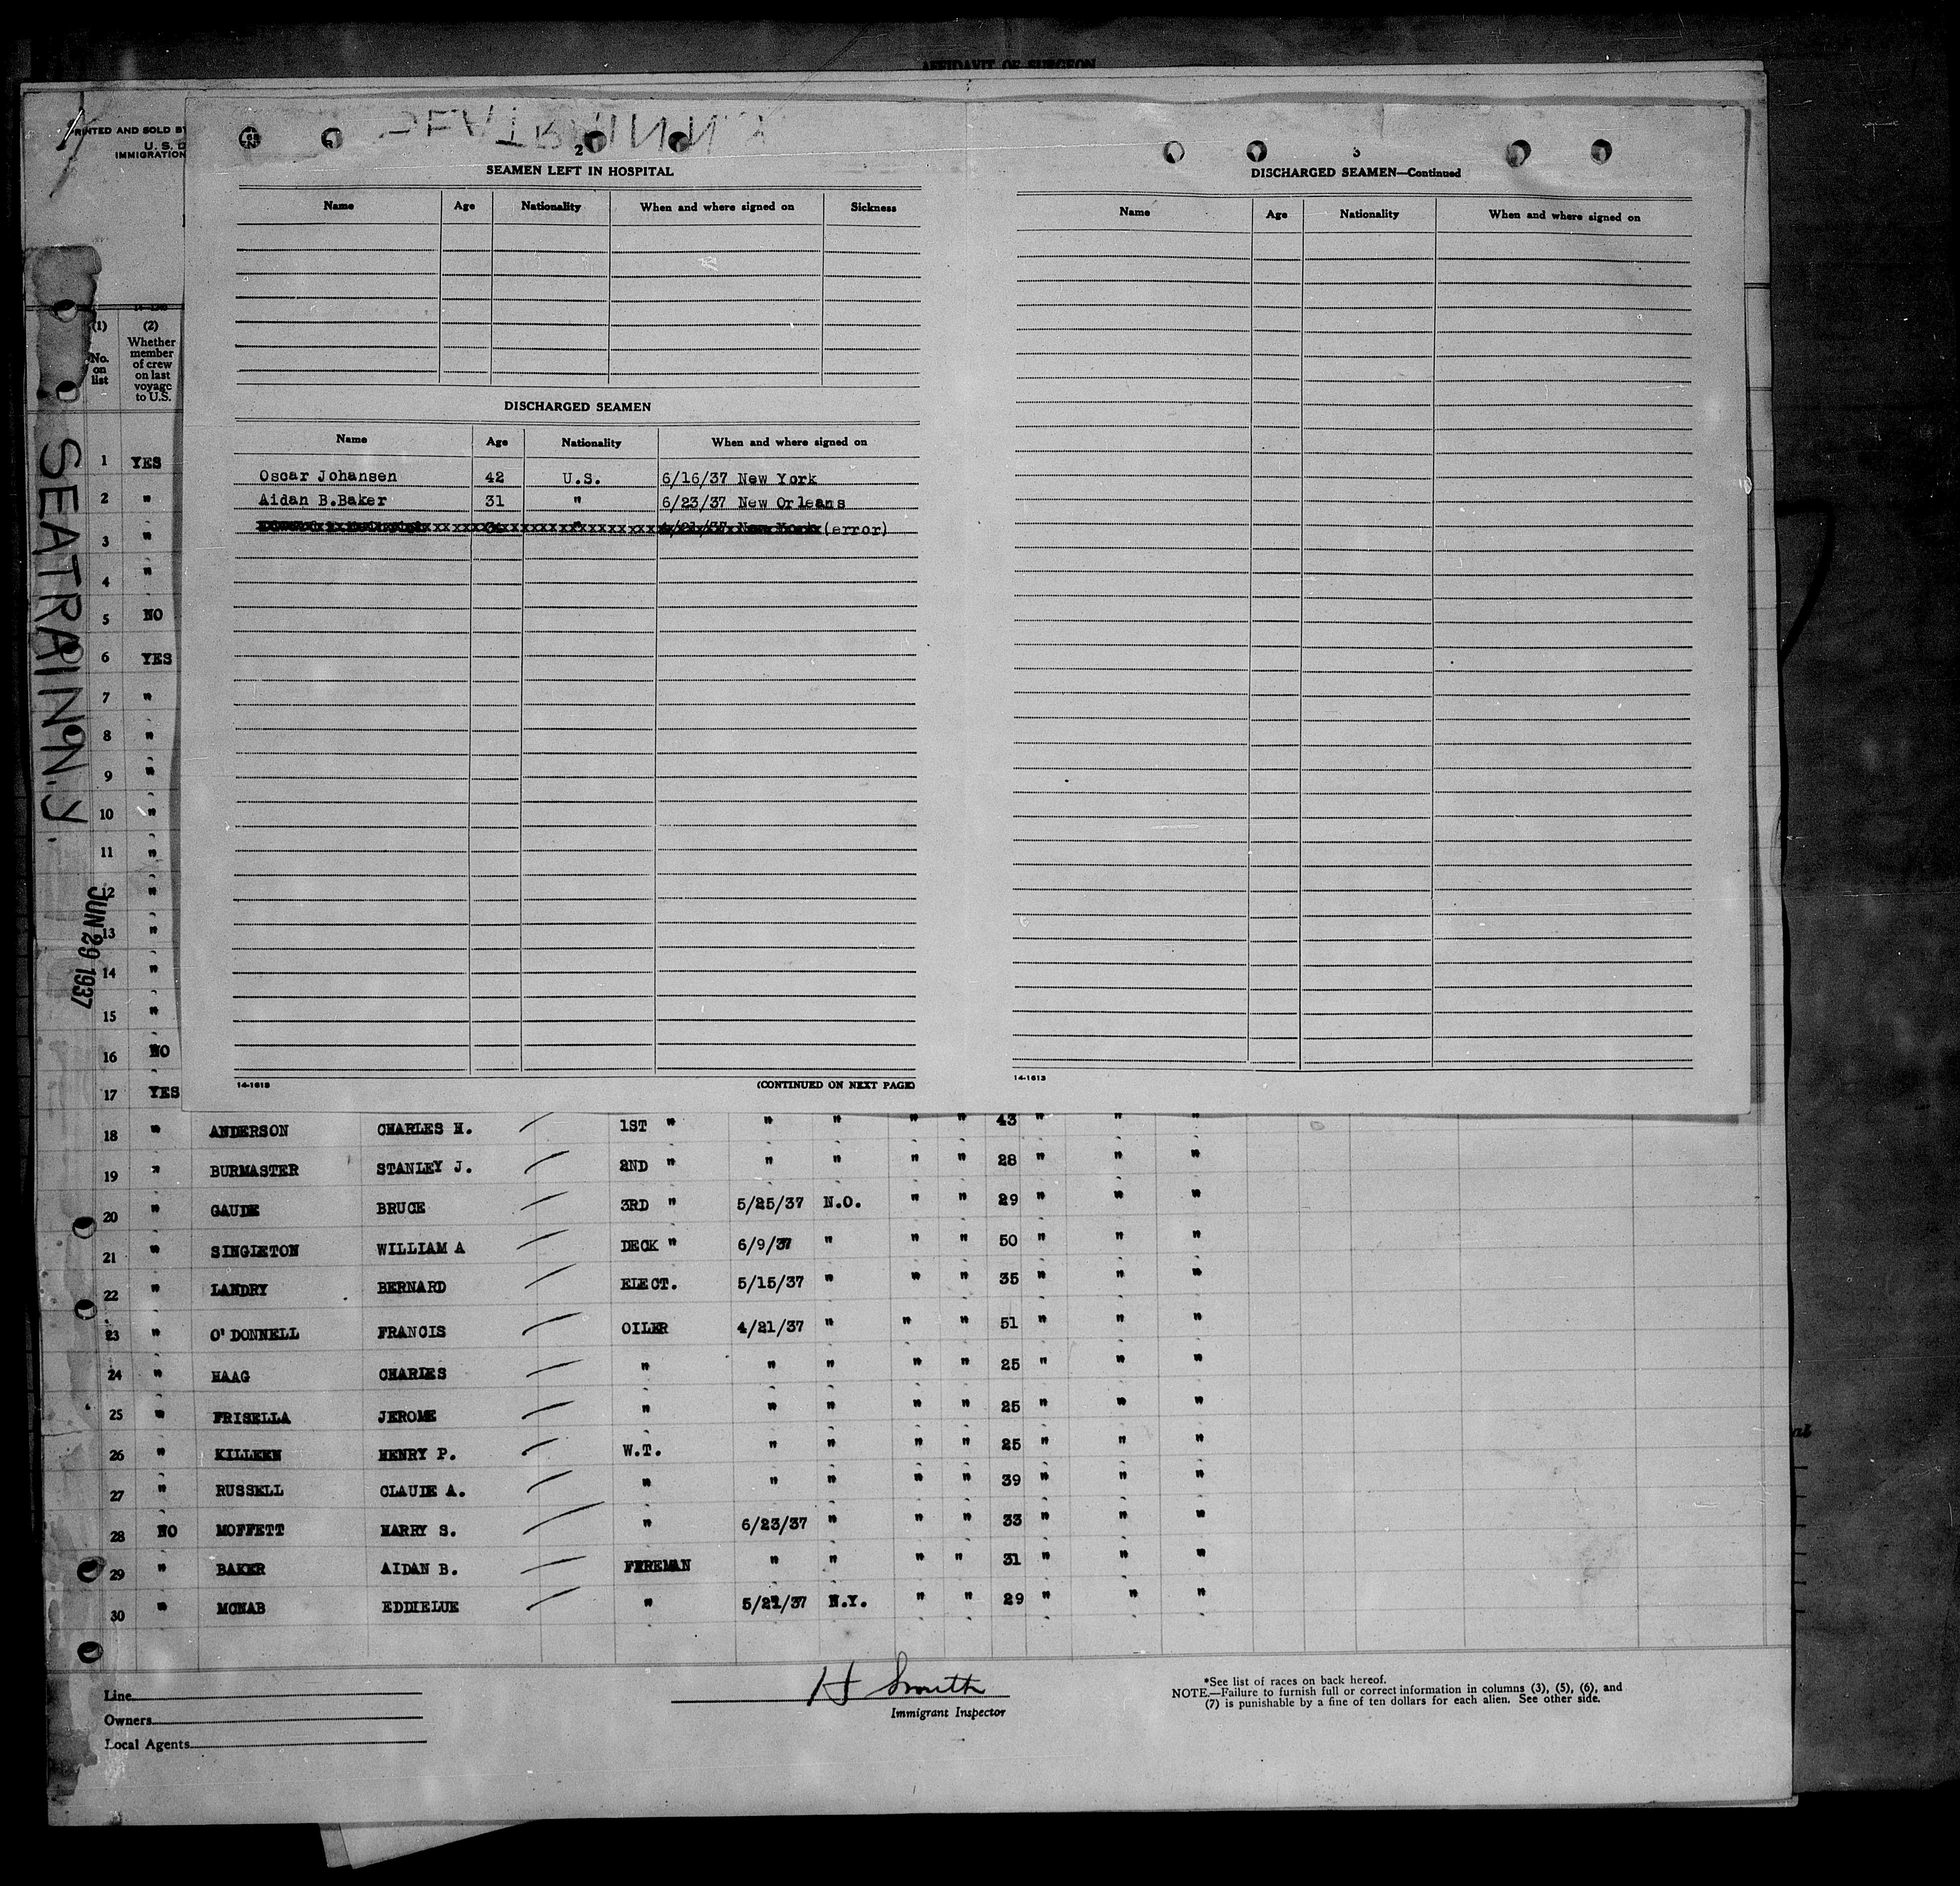 AFFIDAVIT OF SURGEON
PRINTED AND SOLD BY
U. S. D
IMMIGRATION
2
SEAMEN LEFT IN HOSPITAL
Name Age Nationality When and where signed on Sickness
DISCHARGED SEAMEN
Name Age Nationality When and where signed on
Oscar Johansen 42 U.S. 6/16/37 New York
Aidan B.Baker 31 " 6/23/37 New Orleans
(error)
14-1613 (CONTINUED ON NEXT PAGE)
3
DISCHARGED SEAMEN—Continued
Name Age Nationality When and where signed on
14-1613
SEATRAIN N.Y.
JUN 29 1937
(1) (2)
No. on list
Whether member of crew on last voyage to U.S.
1 YES
2 "
3 "
4 "
5 NO
6 YES
7 "
8 "
9 "
10 "
11 "
12 "
13 "
14 "
15 "
16 NO
17 YES
18 " ANDERSON CHARLES H. 1ST " " " " " 43 " " "
19 " BURMASTER STANLEY J. 2ND " " " " " 28 " " "
20 " GAUDE BRUCE 3RD " 5/25/37 N.O. " " 29 " " "
21 " SINGLETON WILLIAM A DECK " 6/9/37 " " " 50 " " "
22 " LANDRY BERNARD ELECT. 5/15/37 " " " 35 " " "
23 " O'DONNELL FRANCIS OILER 4/21/37 " " " 51 " " "
24 " HAAG CHARLES " " " " " 25 " " "
25 " FRISELLA JEROME " " " " " 25 " " "
26 " KILLEEN HENRY P. W.T. " " " " 25 " " "
27 " RUSSELL CLAUDE A. " " " " " 39 " " "
28 NO MOFFETT HARRY S. " 6/23/37 " " " 33 " " "
29 " BAKER AIDAN B. FIREMAN " " " " 31 " " "
30 " MCNAB EDDIELUE " 5/21/37 N.Y. " " 29 " " "
Line
Owners
Local Agents
H Smith
Immigrant Inspector
*See list of races on back hereof.
NOTE.—Failure to furnish full or correct information in columns (3), (5), (6), and
(7) is punishable by a fine of ten dollars for each alien. See other side.